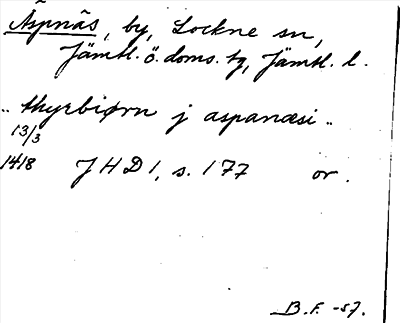 Äspnäs, by, Lockne sn,
Jämtl. ö. doms. tg, Jämtl. l.
.. thyrbiørn j aspanæsi ..
13/3
1418 JHD 1, s. 177 or.
B.F. -57.